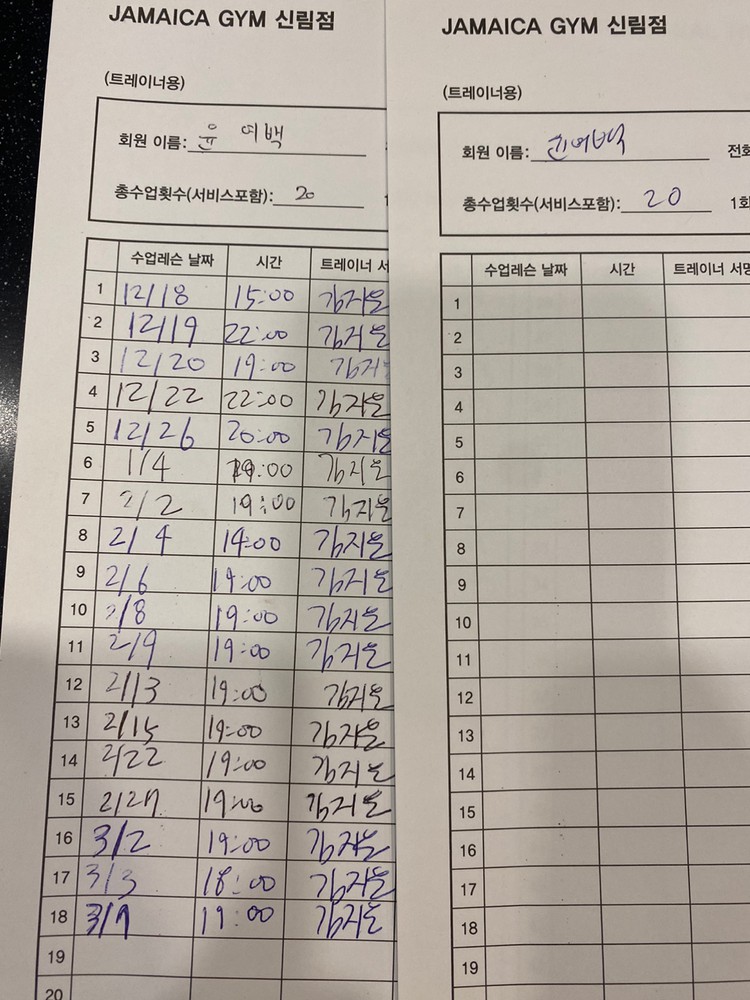 JAMAICA GYM 신림점
(트레이너용)
회원 이름: 윤 여백
총수업횟수(서비스포함): 20
수업레슨 날짜 시간 트레이너 서
1 12/18 15:00 김지은
2 12/19 22:00 김지은
3 12/20 19:00 김지
4 12/22 22:00 김지은
5 12/26 20:00 김지은
6 1/4 19:00 김지은
7 2/2 19:00 김지은
8 2/4 14:00 김지은
9 2/6 19:00 김지은
10 2/8 19:00 김지은
11 2/9 19:00 김지은
12 2/13 19:00 김지은
13 2/15 19:00 김지은
14 2/22 19:00 김지은
15 2/27 19:00 김지은
16 3/2 19:00 김지은
17 3/3 18:00 김지은
18 3/7 19:00 김지은
19
20
JAMAICA GYM 신림점
(트레이너용)
회원 이름: 윤여백 전화
총수업횟수(서비스포함): 20 1회
수업레슨 날짜 시간 트레이너 서명
1
2
3
4
5
6
7
8
9
10
11
12
13
14
15
16
17
18
19